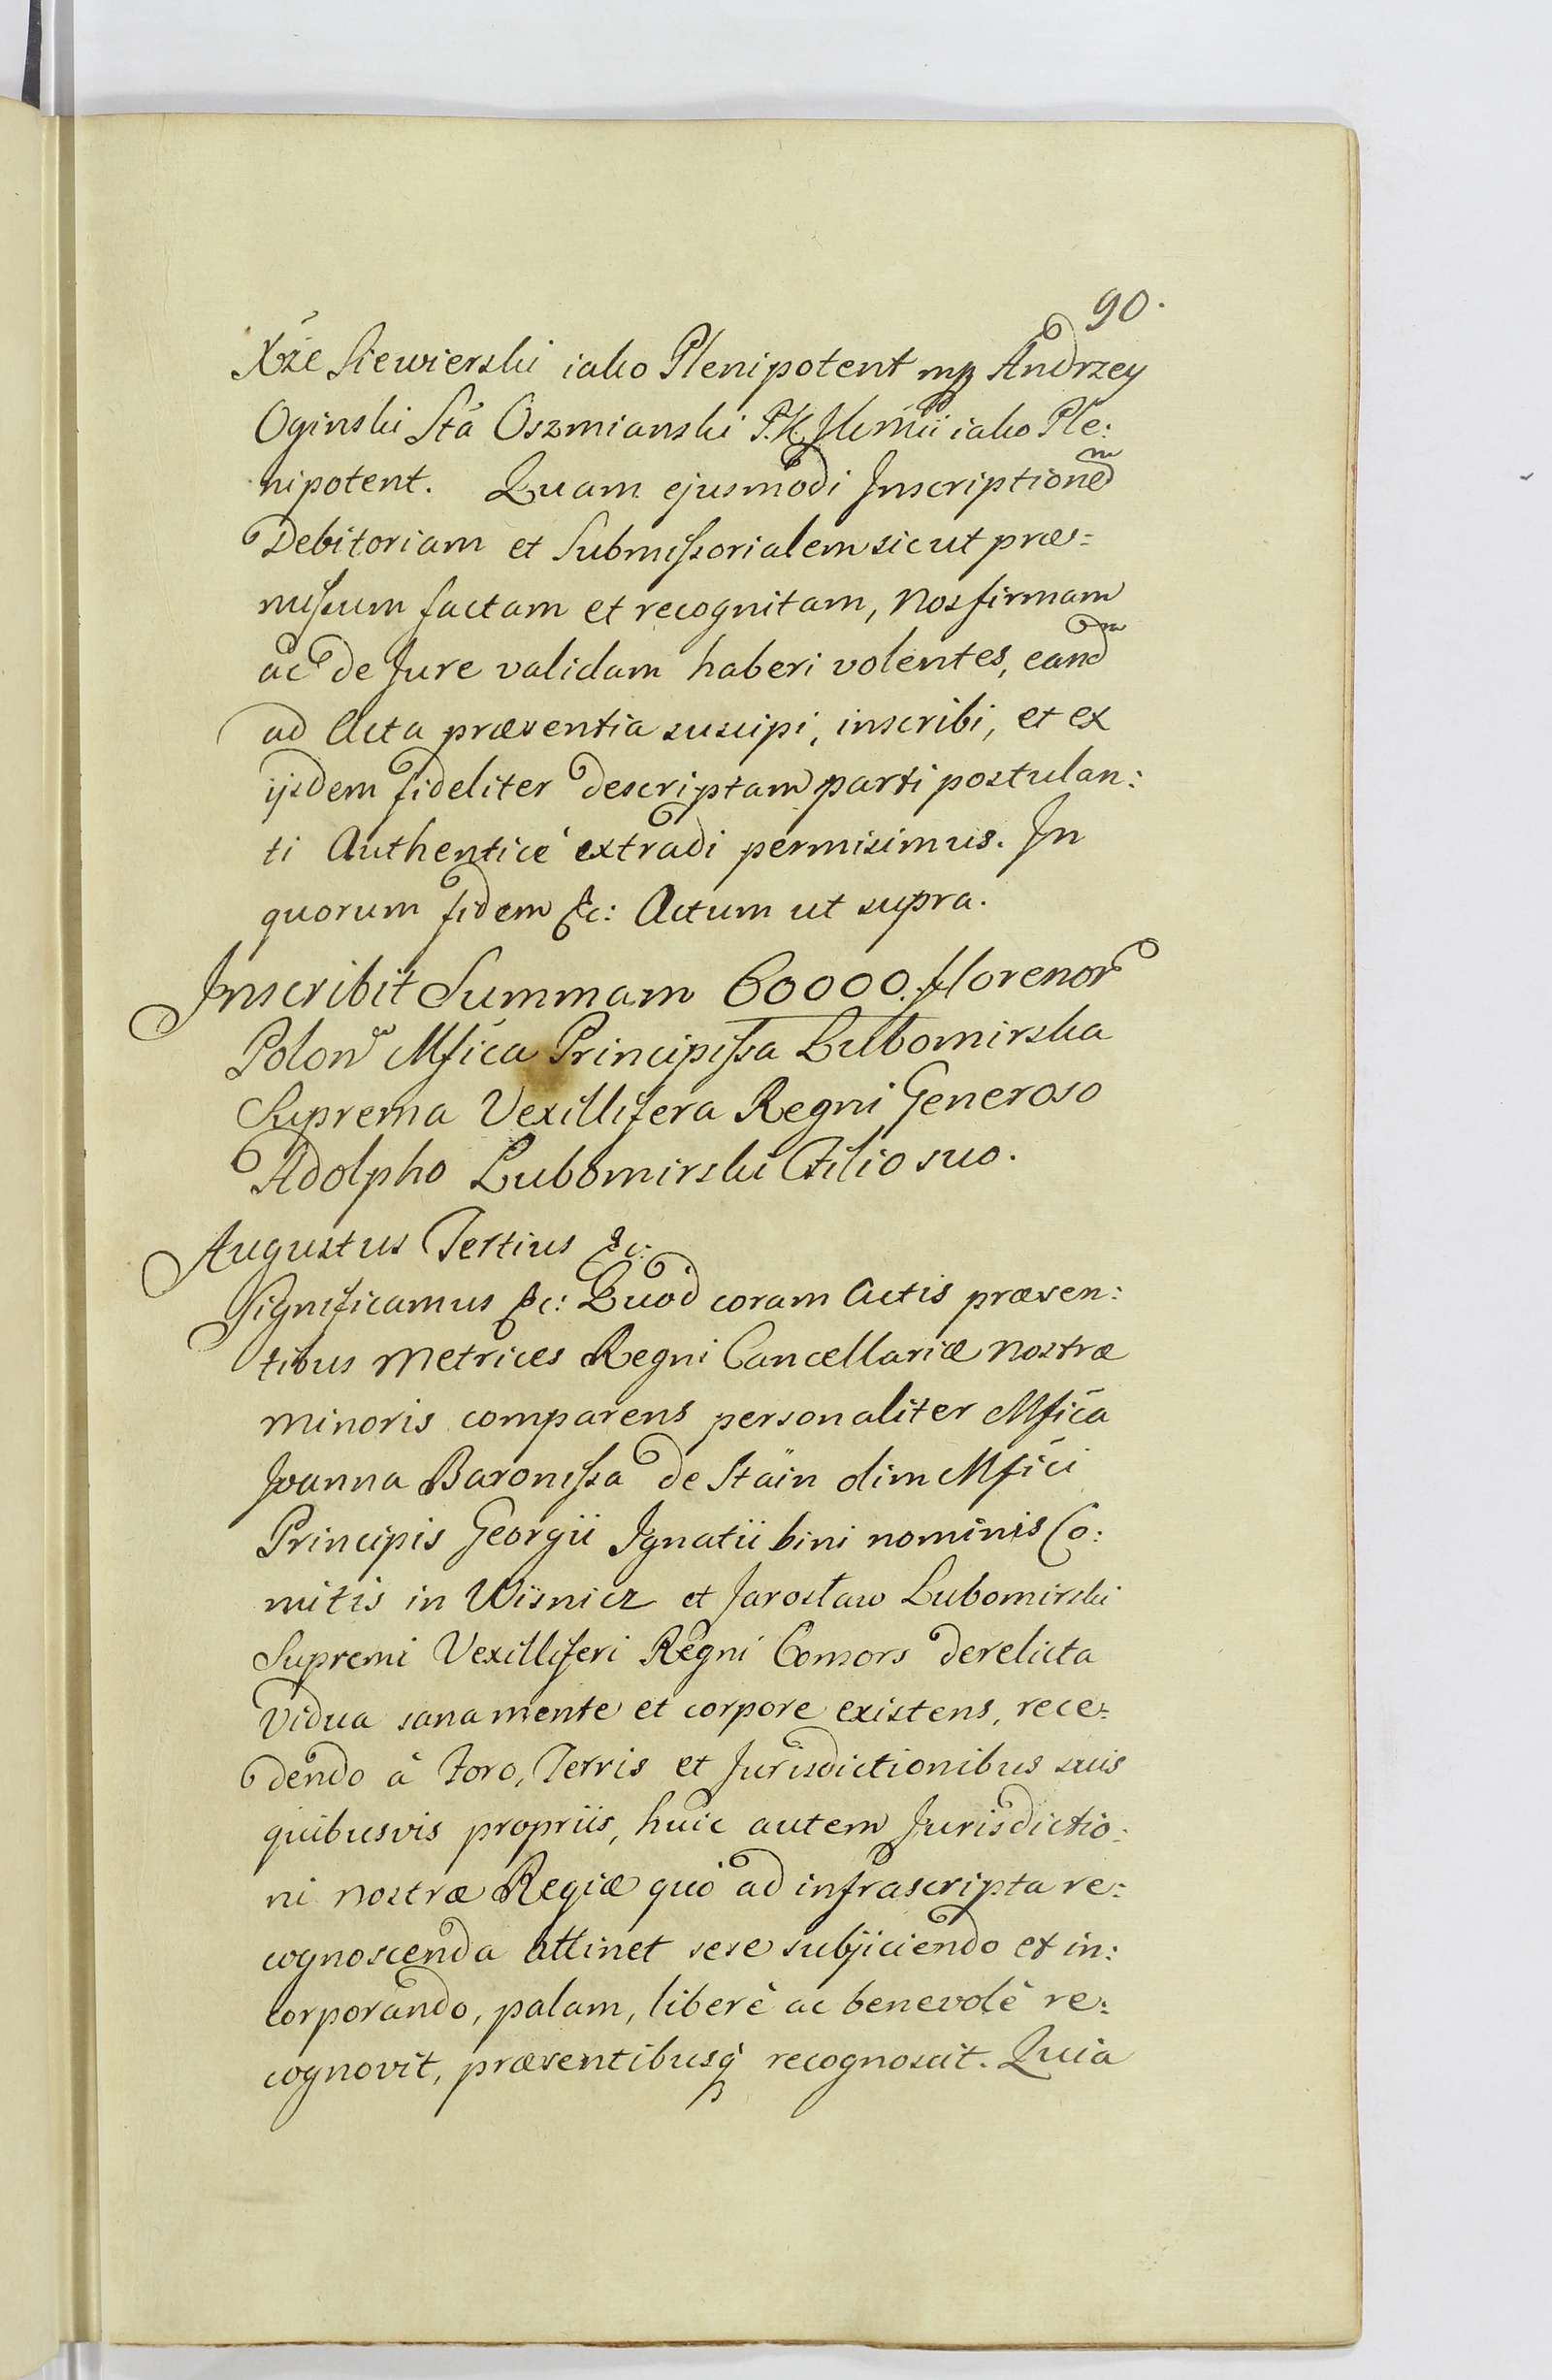 90.
Xże Siewierski iako Plenipotent mp Andrzey
Oginski Stã Oszmianski iako Ple:
nipotent. Quam ejusmodi Inscriptionem
Debitoriam et Submissorialem sicut præ=
missum factam et recognitam, Nos firmam
ac de Jure validam haberi volentes, eandm
ad Acta præsentia suscipi, inscribi, et ex
ijsdem fideliter descriptam parti postulan:
ti Authenticè extradi permisimus. In
quorum fidem &c: Actum ut supra.
Inscribit Summam 60000. florenor
Polon Mfica Principissa Lubomirska
Suprema Vexillifera Regni Generoso
Adolpho Lubomirski Filio suo.
Augustus Tertius &c:
Significamus &c: Quod coram Actis præsen:
tibus Metrices Regni Cancellariæ Nostræ
Minoris comparens personaliter Mfica
Joanna Baronissa de Stäin olim Mfici
Principis Georgii Ignatii bini nominis Co:
mitis in Wisnicz et Jarosław Lubomirski
Supremi Vexilliferi Regni Consors derelicta
Vidua sana mente et corpore existens, rece=
dendo à Foro, Terris et Jurisdictionibus suis
quibusvis propriis, huic autem Jurisdictio:
ni Nostræ Regiæ quò ad infrascripta re:
cognoscenda attinet sese subjiciendo et in:
corporando, palam, liberè ac benevolè re:
cognovit, præsentibusq recognoscit. Quia